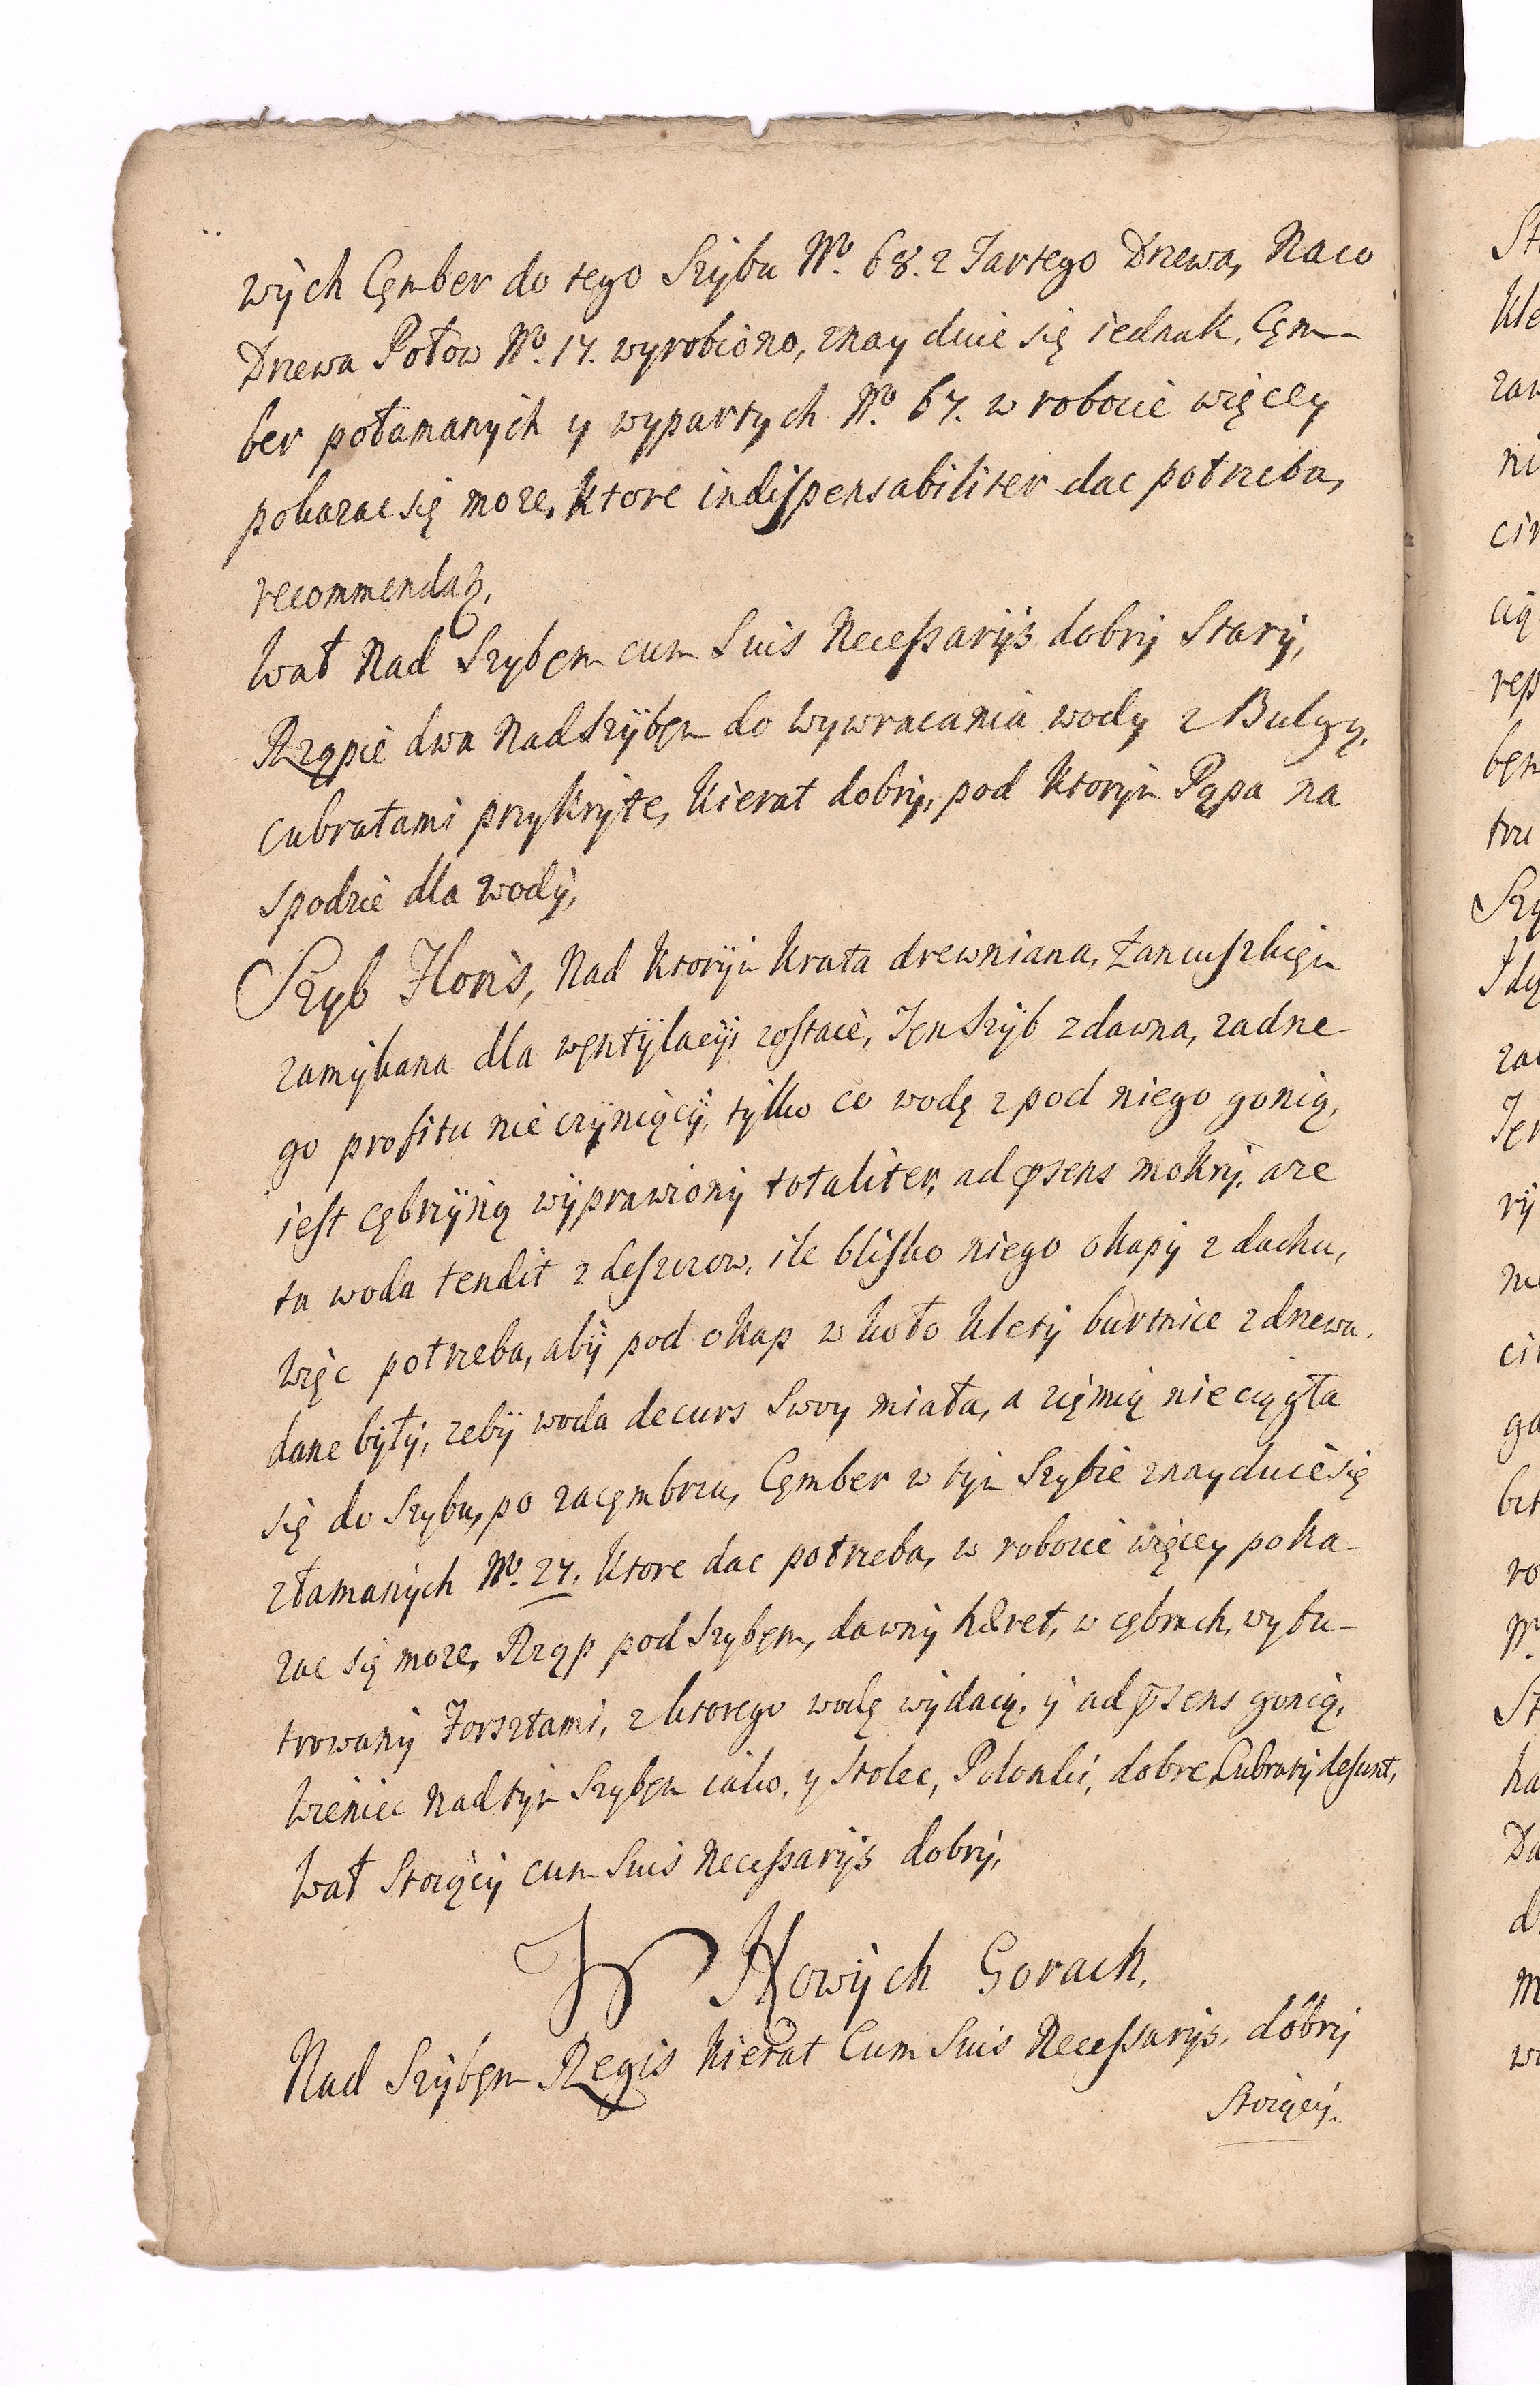 wÿch Cęmber do tego Szÿbu No. 68. z Tartego Drzewa, Naco
Drzewa Połow No. 17. wyrobiono, znayduie się iednak, Cęm-
ber połamanÿch y wypartych No. 67. w robocie więcey
pokazac się moze, ktore indispensabiliter dac potrzeba,
recommendaħ.
Wał Nad Szybęm cum Suis Necessarÿs dobrÿ Starÿ,
Rząpie dwa Nad Szÿbęm do wywracania wody z Bulgÿ,
cubratami przykrÿte, Kierat dobrÿ, pod Ktorÿm Pąpa na
spodzie dla wodÿ,
Szyb Floris, Nad Ktorÿm Krata drewniana, Łancuszkięm
zamÿkana dla węntÿlacÿi zostaie, Tęn Szÿb zdawna, zadne-
go profitu nie czÿniącÿ, tylko co wodę zpod niego gonią,
iest cębrzÿną wÿprawionÿ totaliter, ad pñsens mokrÿ, aze
ta woda tendit z deszczow, ile blisko niego okapÿ z dachu,
Więc potrzeba, abÿ pod okap w koło kletÿ burtnice z drzewa
dane byłÿ, zebÿ woda decurs Swoy miała, a zięmią nie ciągła
się do Szybu, po zacęmbrzu, Cęmber w tÿm Szybie znayduie się
złamanÿch No. 27. ktore dac potrzeba, w robocie więcey poka-
zac się moze, Rząp pod Szybęm, dawnÿ kieret, w cębrach, wybu-
trowanÿ Forsztami, z ktorego wodę wÿdaią, ÿ ad pñsens gonią,
Wieniec nad tÿm Szybęm cało, y Stolec, Polonki, dobre, Cubratÿ desunt,
Wał Stoiącÿ cum Suis Necessarÿs dobrÿ,
W Nowÿch Gorach.
Nad Szÿbęm Regis Kierat Cum Suis Necessarÿs, dobrÿ
Stoiącÿ.